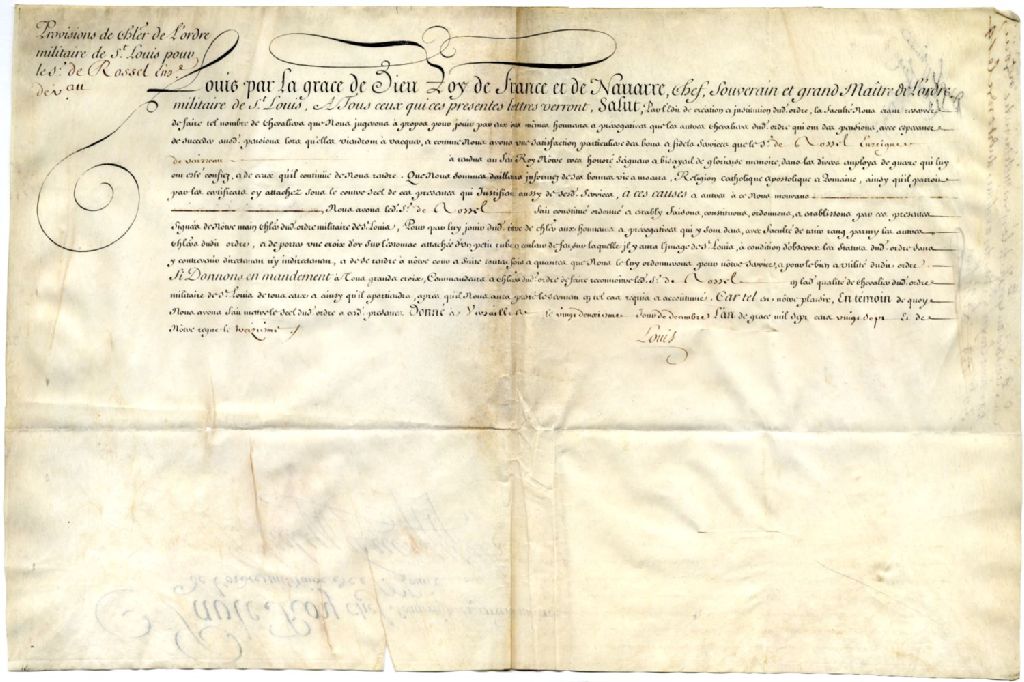 Provisions de chl.er de L'ordre
militaire de S.t Louis pour
le S.r de Rossel Ens.e
de v.au
Louis par La grace de Dieu Roy de france et de Navarre, Chef, Souverain et grand Maitre de L'ordre
militaire de S.t Louis, A Tous ceux qui ces presentes lettres verront, Salut; Par L'Edit de creation et institution dud. ordre, la faculté Nous étant reservée
de faire tel nombre de Chevaliers que Nous jugerons à propos pour jouir par eux des mêmes honneurs et prerogatives que les autres Chevaliers dud. ordre qui ont des pensions, avec esperance
de succeder ausd. pensions lors qu'elles viendront à vacquer, et comme Nous avons une satisfaction particuliere des bons et fidels services que le S.r de Rossel Enseigne
de vaisseau a rendus au feu Roy Notre tres honoré seigneur et bisayeul de glorieuse memoire, dans les divers employs de guerre qui luy
ont été confiez, et de ceux qu'il continue de Nous rendre. Que Nous sommes d'ailleurs informez de ses bonnes vie et moeurs, Religion catholique Apostolique et Romaine, ainsy qu'il paroit
par les certificats cy attachez sous le contre scel de ces presentes qui justifient aussy de sesd. services, a ces causes et autres à ce Nous mouvans
Nous avons led. S.r de Rossel fait constitué ordonné et etably, faisons, constituons, ordonnons, et etablissons par ces presentes
signées de Notre main Chl.er dud. ordre militaire de S.t Louis, Pour par luy jouir dud. titre de chl.er aux honneurs et prerogatives qui y sont deus, avec faculté de tenir rang parmy les autres
chl.ers dudit ordre, et de porter une croix d'or sur L'estomac attachée d'un petit ruban couleur de feu, sur laquelle il y aura L'image de S.t Louis, à condition d'observer les statuts dud. ordre sans
y contrevenir directement n'y indirectement, et de se rendre à notre cour et suite toutes fois et quantes que Nous le luy ordonnerons pour notre service, et pour le bien et utilité dudit ordre
Si Donnons en mandement à Tous grands croix, Commandeurs et chl.ers dud. ordre de faire reconnoitre led. S.r de Rossel en lad. qualité de chevalier dud. ordre
militaire de S.t Louis de tous ceux et ainsy qu'il apartiendra, après qu'il Nous aura presté le serment en tel cas requis et accoutumé. Car tel est notre plaisir, En temoin de quoy
Nous avons fait mettre le scel dud. ordre a cesd. presentes. Donné à Versailles le vingt deuxieme Jour de decembre L'an de grace mil sept cens vingt sept Et de
Notre regne le treizieme
Louis